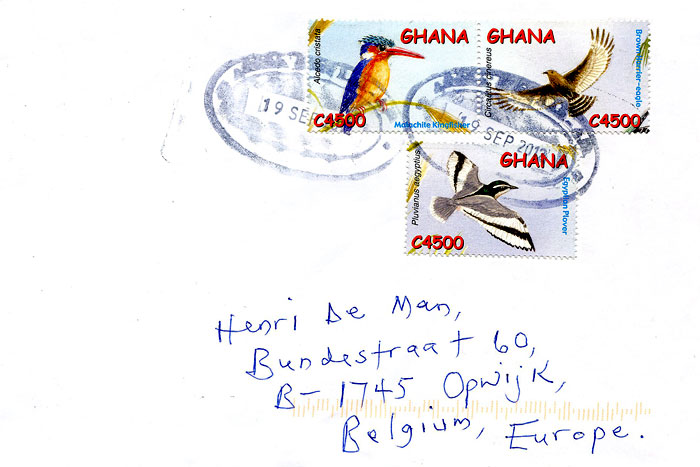 GHANA
Alcedo cristata
C4500
Malachite Kingfisher
GHANA
Circaetus cinereus
Brown Harrier-eagle
C4500
GHANA
Pluvianus aegyptius
Egyptian Plover
C4500
19 SEP
16 SEP 2012
Henri De Man,
Bundestraat 60,
B-1745 Opwijk,
Belgium, Europe.